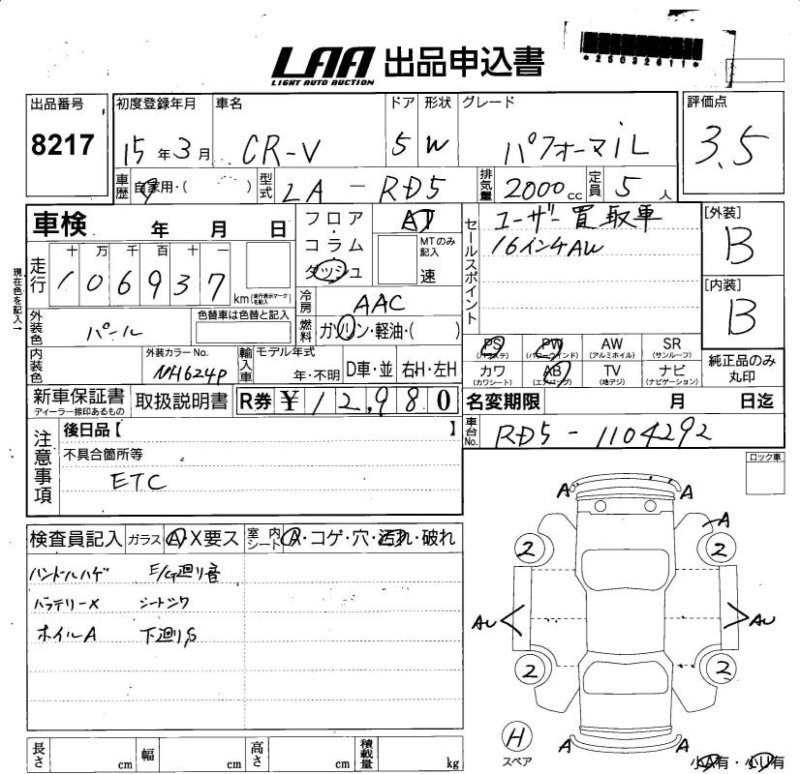 LAA 出品申込書
LIGHT AUTO AUCTION
*25032611*
出品番号 8217
初度登録年月 車名 ドア 形状 グレード 評価点
15年3月 CR-V 5 W パフォーマiL 3.5
車歴 自家用・( ) 型式 LA-RD5 排気量 2000cc 定員 5人
車検 年 月 日
フロア・コラム ダッシュ
AT
MTのみ記入 速
セールスポイント
ユーザー買取車
16インチAW
[外装] B
[内装] B
走行 十万千百十一
106937 km (走行表示マークを記入)
現在色を記入→
冷房 AAC
外装色 パール 色替車は色替と記入
燃料 ガソリン・軽油・( )
内装色 外装カラーNo. NH624P
輸入車 モデル年式 年・不明 D車・並 右H・左H
PS (パワステ) PW (パワーウインド) AW (アルミホイル) SR (サンルーフ)
カワ (カワシート) AB (エアバッグ) TV (地デジ) ナビ (ナビゲーション)
純正品のみ丸印
新車保証書 ディーラー捺印あるもの 取扱説明書 R券 ¥12,980
名変期限 月 日迄
車台No. RD5-1104292
注意事項
後日品【 】
不具合箇所等
ETC
ロック車
検査員記入 ガラス A X要ス 室内シート A・コゲ・穴・汚れ・破れ
ハンドルハゲ E/G廻り音
バッテリーX
ホイルA 下廻りS
A A
A
2 2
AU AU
2 2
A A
H
スペア
小A有・小U有
長さ cm 幅 cm 高さ cm 積載量 kg